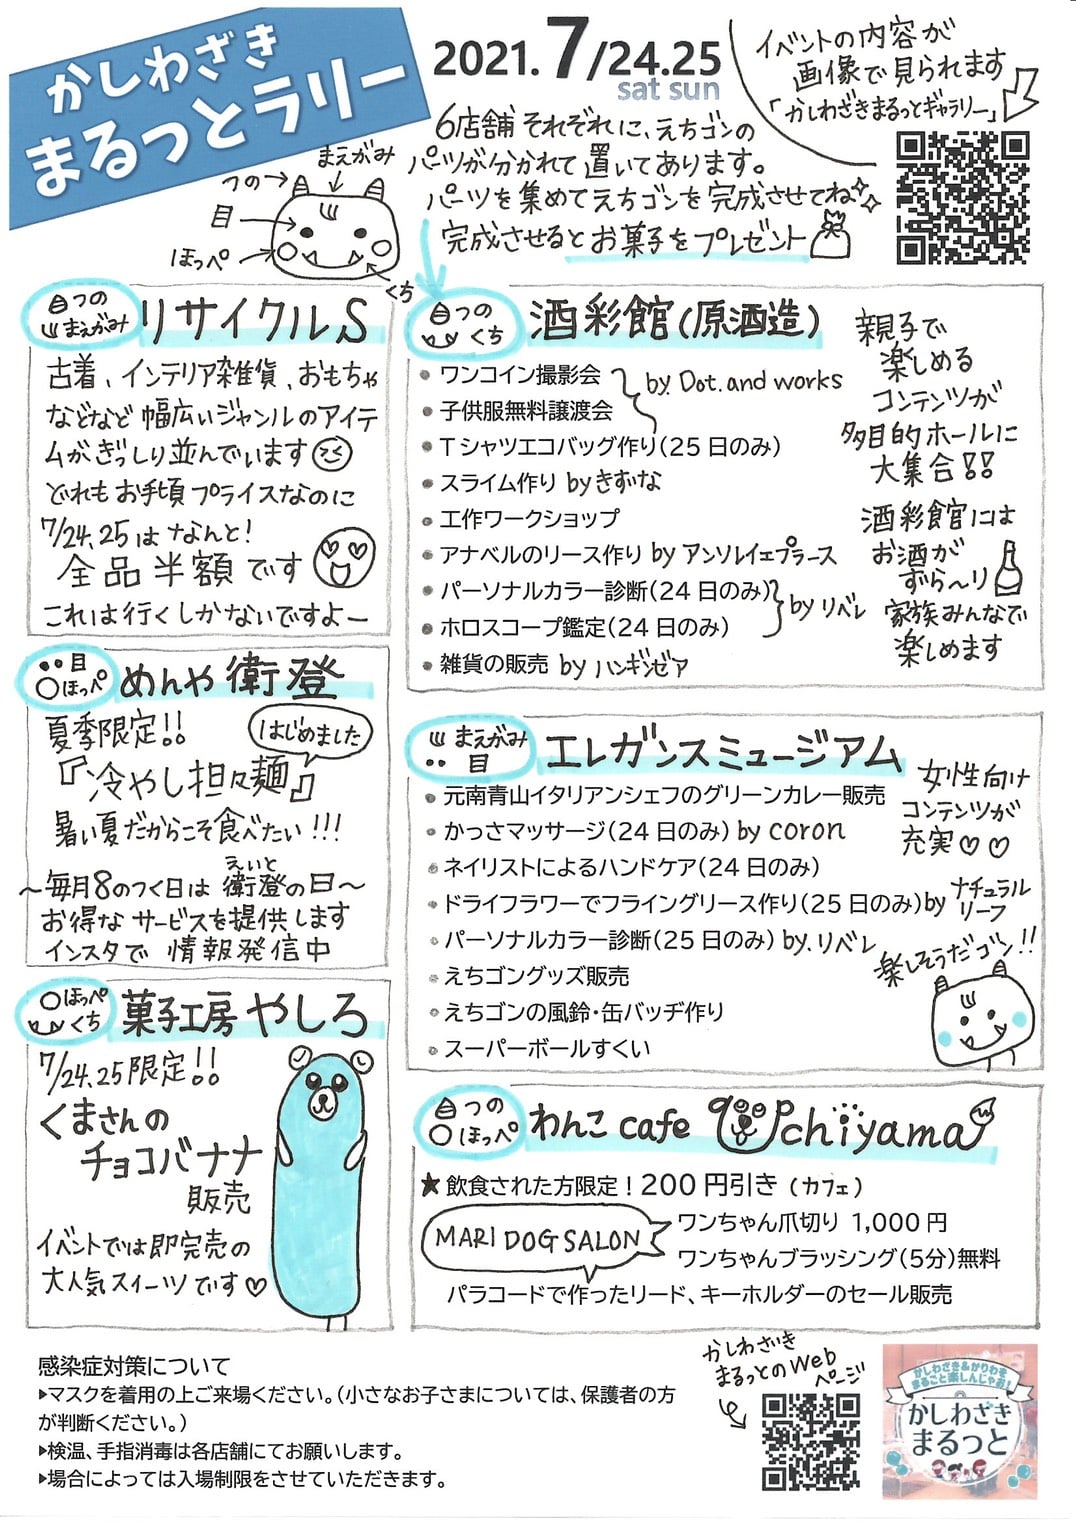 かしわざき
まるっとラリー
2021.7/24.25
sat sun
イベントの内容が
画像で見られます
「かしわざきまるっとギャラリー」
6店舗それぞれに、えちゴンの
パーツが分かれて置いてあります。
パーツを集めてえちゴンを完成させてね
完成させるとお菓子をプレゼント
まえがみ
つの
目
ほっぺ
くち
つの
まえがみ
リサイクルS
古着、インテリア雑貨、おもちゃ
などなど幅広いジャンルのアイテ
ムがぎっしり並んでいます
どれもお手頃プライスなのに
7/24.25はなんと!
全品半額です
これは行くしかないですよー
つの
くち
酒彩館(原酒造)
ワンコイン撮影会
子供服無料譲渡会
by. Dot. and works
Tシャツエコバッグ作り(25日のみ)
スライム作り byきずな
工作ワークショップ
アナベルのリース作り by アンソレイエプラース
パーソナルカラー診断(24日のみ)
ホロスコープ鑑定(24日のみ)
by リベレ
雑貨の販売 by ハンギンゼア
親子で
楽しめる
コンテンツが
多目的ホールに
大集合!!
酒彩館には
お酒が
ずら〜り
家族みんなで
楽しめます
目
ほっぺ
めんや衛登
夏季限定!!
はじめました
『冷やし担々麺』
暑い夏だからこそ食べたい!!!
えいと
〜毎月8のつく日は衛登の日〜
お得なサービスを提供します
インスタで情報発信中
まえがみ
目
エレガンスミュージアム
元南青山イタリアンシェフのグリーンカレー販売
かっさマッサージ(24日のみ) by coron
ネイリストによるハンドケア(24日のみ)
ドライフラワーでフライングリース作り(25日のみ)by ナチュラル
リーフ
パーソナルカラー診断(25日のみ) by.リベレ
えちゴングッズ販売
えちゴンの風鈴・缶バッヂ作り
スーパーボールすくい
女性向け
コンテンツが
充実♡♡
楽しそうだゴン!!
ほっぺ
くち
菓子工房やしろ
7/24.25限定!!
くまさんの
チョコバナナ
販売
イベントでは即完売の
大人気スイーツです♡
つの
ほっぺ
わんこ cafe Uchiyama
★飲食された方限定!200円引き(カフェ)
MARI DOG SALON
ワンちゃん爪切り 1,000円
ワンちゃんブラッシング(5分)無料
パラコードで作ったリード、キーホルダーのセール販売
感染症対策について
▶マスクを着用の上ご来場ください。(小さなお子さまについては、保護者の方
が判断ください。)
▶検温、手指消毒は各店舗にてお願いします。
▶場合によっては入場制限をさせていただきます。
かしわざき
まるっとのWeb
ページ
かしわざき&かりわを
まるごと楽しんじゃお!
かしわざき
まるっと